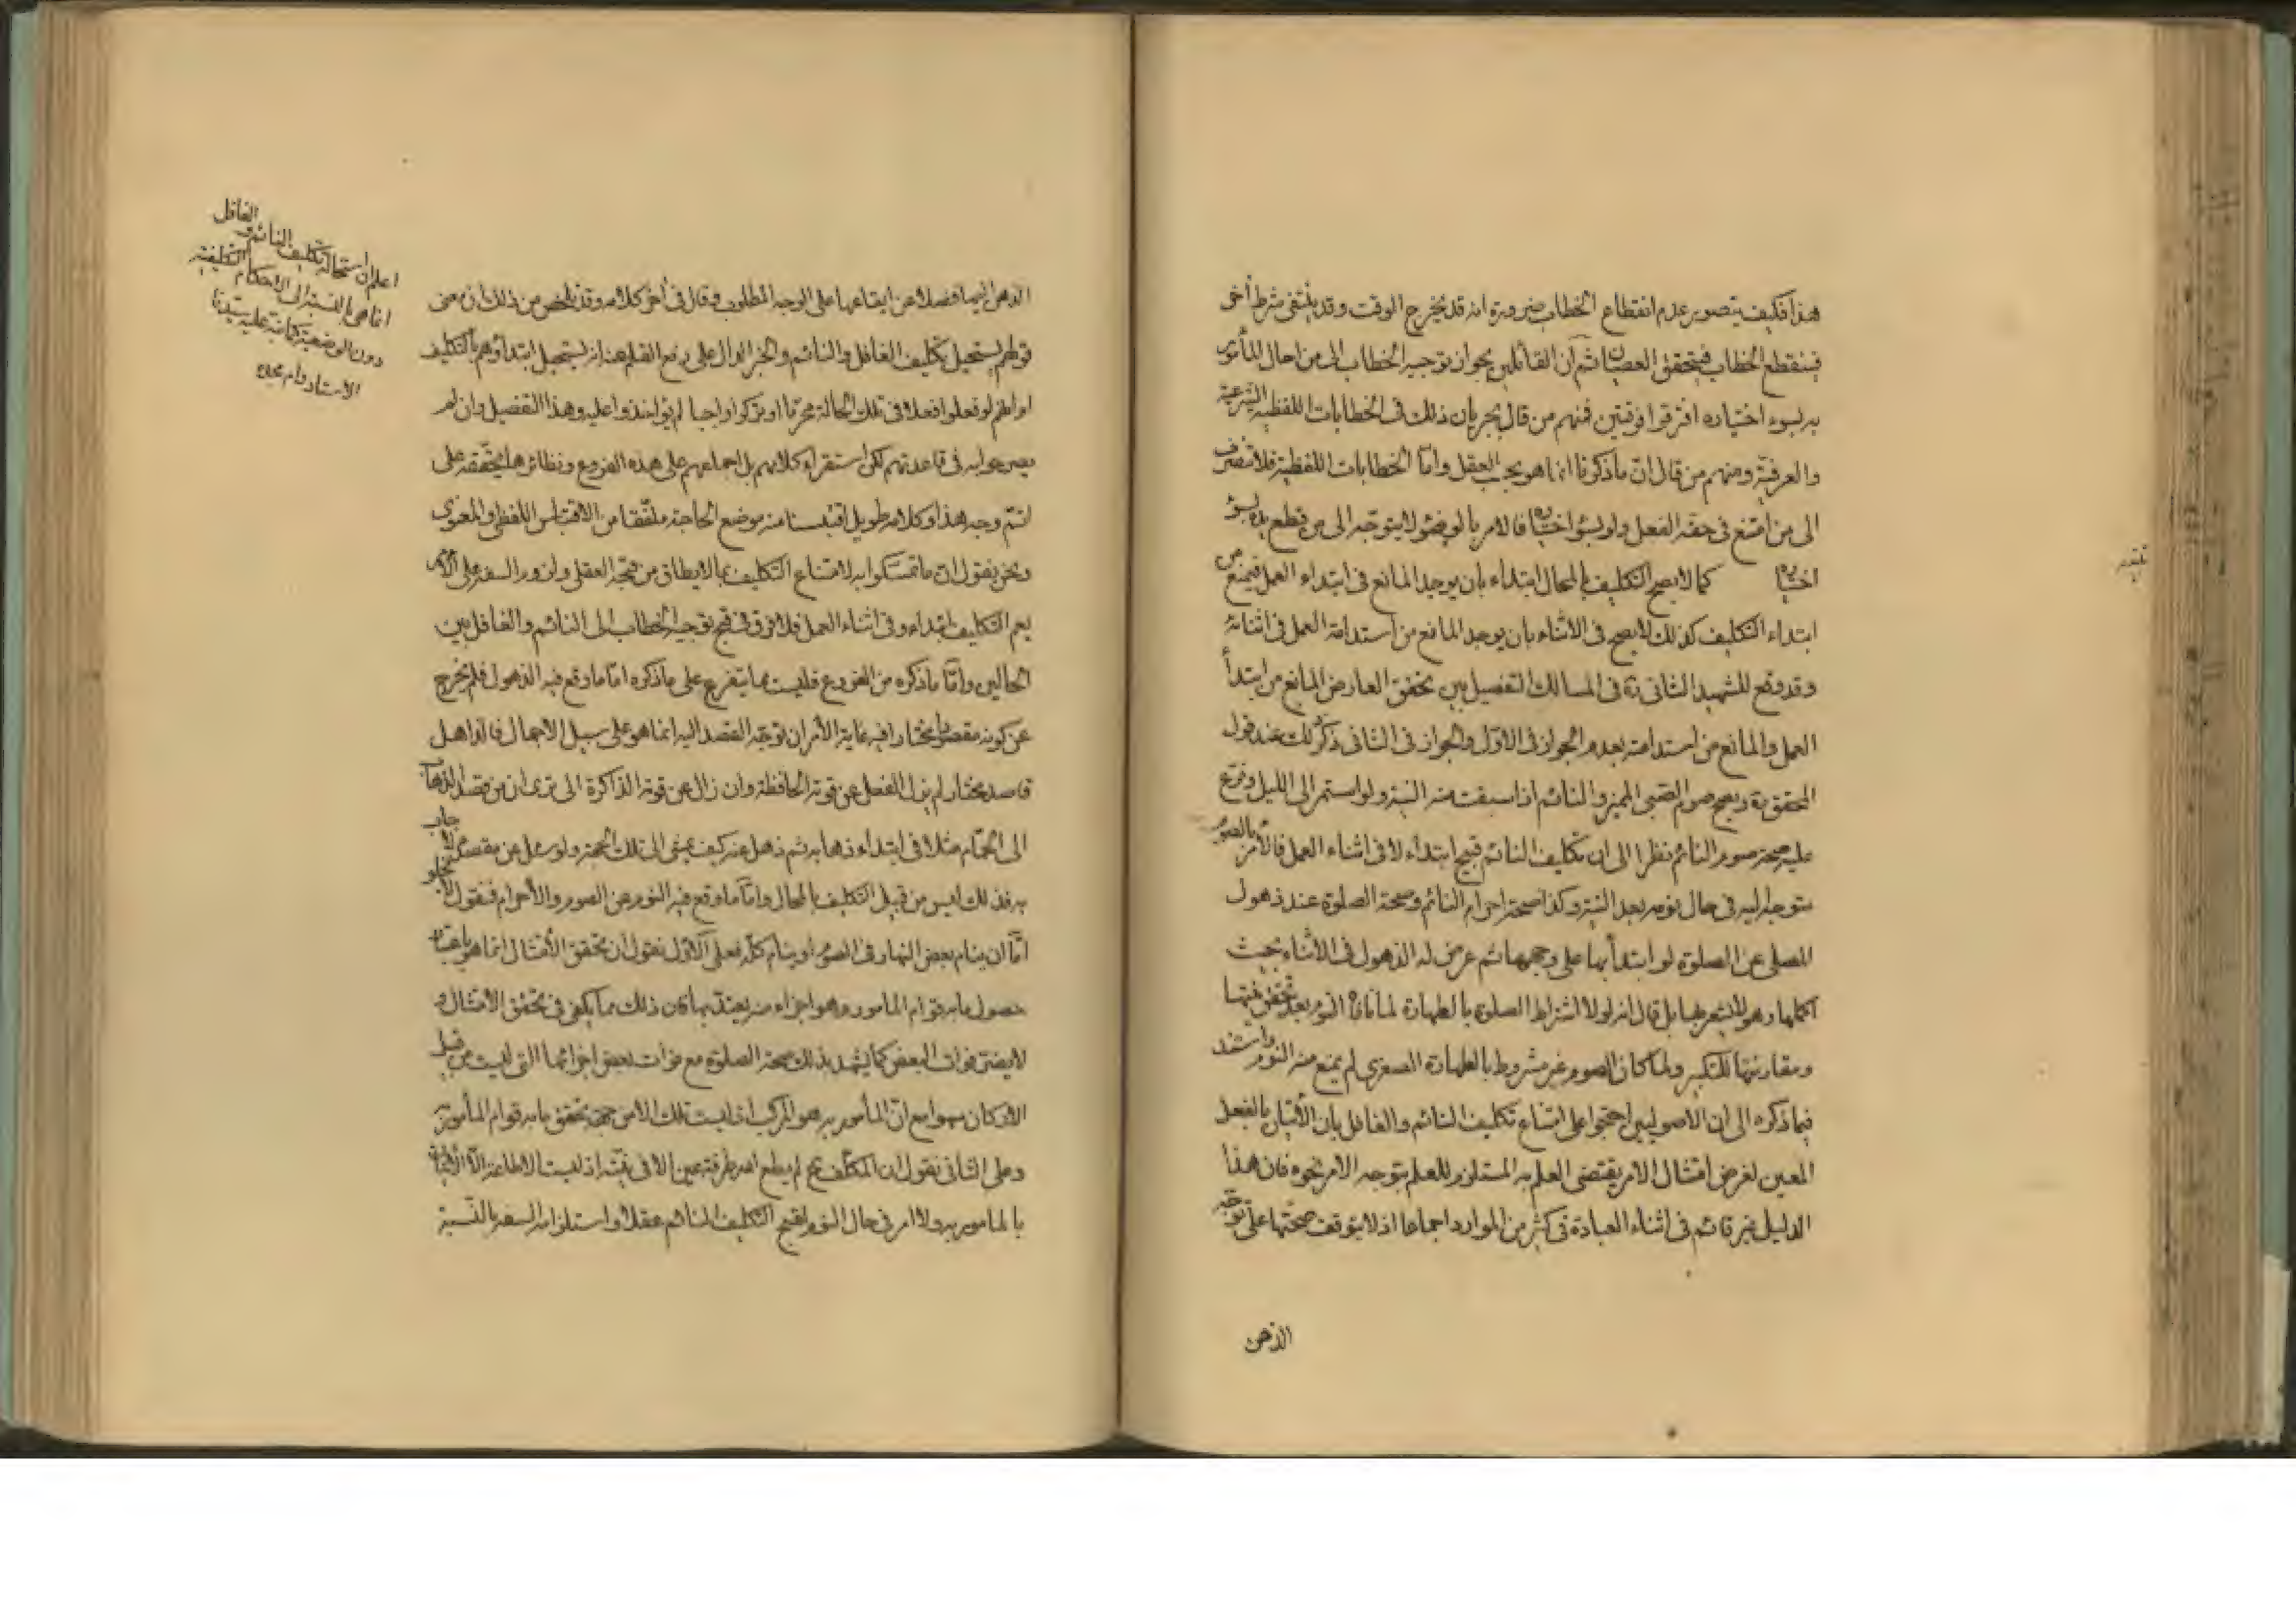 هذا فكيف يتصور عدم انقطاع الخطاب ضرورة انه قد يخرج الوقت وقد ينتفى شرط أخر
فينقطع الخطاب فيتحقق العصيان ثم ان القائلين بجواز توجيه الخطاب الى من احال المأمور
به بسوء اختياره افترقوا فرقتين فمنهم من قال بجريان ذلك فى الخطابات اللفظية الشرعية
والعرفية ومنهم من قال ان ما ذكرنا انما هو بحسب العقل وامّا الخطابات اللفظية فلا تنصرف
الى من امتنع فى حقه الفعل ولو بسوء اختياره فالامر بالوضوء لا يتوجّه الى من قطع يده بسوء
اختياره كما لا يصح التكليف بالمحال ابتداء بان يوجد المانع فى ابتداء العمل فيمنع من
ابتداء التكليف كذلك لا يصح فى الاثناء بان يوجد المانع من استدامة العمل فى اثنائه
وقد وقع للشهيد الثانى ره فى المسالك التفصيل بين تحقق العارض المانع من ابتدأ
العمل والمانع من استدامته بعدم الجواز فى الاوّل والجواز فى الثانى ذكر ذلك عند قول
المحقق ره ويصح صوم الصبى المميز والنائم اذا سبقت منه النية ولو استمر الى الليل وفرّع
عليه صحة صوم النائم نظرا الى ان تكليف النائم قبيح ابتداء لا فى اثناء العمل فالأمر بالصوم
متوجه اليه فى حال نومه بعد النية وكذا صحة احرام النائم وصحة الصلوة عند ذهول
المصلى عن الصلوة لو ابتدأ بها على وجهها ثم عرض له الذهول فى الاثناء بحيث
اكملها وهو لا يشعر بها بل قال انه لولا اشتراط الصلوة بالطهارة لما نافاها النوم بعد تحقق نيتها
ومقارنتها للتكبير ولما كان الصوم غير مشروط بالطهارة الصغرى لم يمنع منه النوم واستند
فيما ذكره الى ان الاصوليين احتجوا على امتناع تكليف النائم والغافل بان الأتيان بالفعل
المعين لغرض امتثال الامر يقتضى العلم به المستلزم للعلم بتوجه الامر نحوه فان هذا
الدليل غير قائم فى اثناء العبادة فى كثير من الموارد اجماعا اذ لا يتوقف صحّتها على توجّه
الذهن
الذهن اليها فضلا عن ايقاعها على الوجه المطلوب وقال فى أخر كلامه وقد تلخص من ذلك ان معنى
قولهم يستحيل تكليف الغافل والنائم والخبر الدال على رفع القلم عنه انه يستحيل ابتداؤهم بالتكليف
او انهم لو فعلوا فعلا فى تلك الحالة محرّما او تركوا واجبا لم يؤاخذوا عليه وهذا التفصيل وان لم
يصرحوا به فى قاعدتهم لكن استقراء كلامهم بل اجماعهم على هذه الفروع ونظائرها يحققه على
اتمّ وجه هذا وكلامه طويل اقتبسنا منه موضع الحاجة ملفّقا من الاقتباس اللفظى والمعنوى
ونحن نقول ان ما تمسكوا به لامتناع التكليف بما لا يطاق من قبح العقل ولزوم السفه على الأمر
يعم التكليف ابتداء وفى اثناء العمل فلا فرق فى قبح توجيه الخطاب الى النائم والغافل بين
الحالين وامّا ما ذكره من الفروع فليست مما يتفرع على ما ذكره امّا ما وقع فيه الذهول فلم يخرج
عن كونه مقصودا مختارا فيه غاية الأمر ان توجّه القصد اليه انما هو على سبيل الاجمال فالذاهل
قاصد مختار لم يزل الفعل عن قوته الحافظة وان زال عن قوته الذاكرة الى ترى ان من قصد الذهاب
الى الحمّام مثلا فى ابتداء ذهابه ثم ذهل عنه كيف يمشى الى تلك الجهة ولو سئل عن مقصده لاجاب
به فذلك ليس من قبيل التكليف بالمحال وامّا ما وقع فيه النوم عن الصوم والأحرام فنقول لا يخلو
امّا ان ينام بعض النهار فى الصوم او ينام كلّه فعلى الاوّل نقول ان تحقق الأمتثال انما هو باعتبار
حصول ما به قوام المامور به وهو اجزاء منه يعتد بها فان ذلك مما يكفى فى تحقق الامتثال و
لا يضره فوات البعض كما يشهد بذلك صحة الصلوة مع فوات بعض اجزائها التى ليست من قبيل
الأركان سهوا مع ان المأمور به هو المركب اذ ليست تلك الا من جهة تحقق ما به قوام المأمور به
وعلى الثانى نقول ان المكلّف ح لم يطع امره طرفة عين الا فى نيّته اذ ليست الاطاعة الّا الأتيان
بالمامور به ولا امر فى حال النوم لقبح التكليف النائم عقلا واستلزامه السفه بالنّسبة
اعلم ان استحالة تكليف النائم والغافل
انما هى بالنسبة الى الاحكام التكليفيّة
دون الوضعية كما نبّه عليه سيّدنا
الاستاد دام مجده